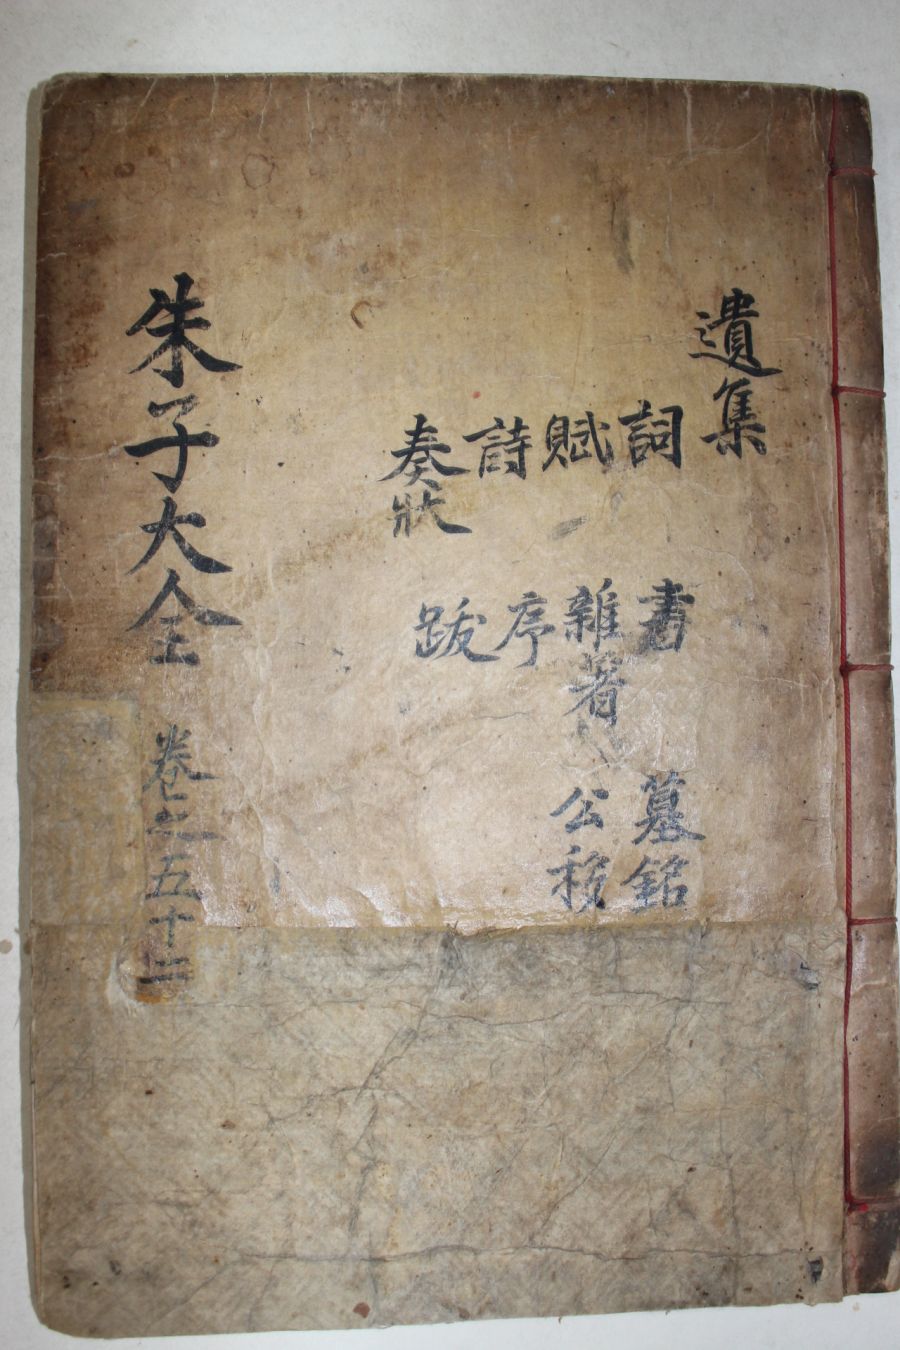 遺集
詞 賦 詩 奏狀
書 雜著 序 跋
墓銘 公移
朱子大全 卷之五十二